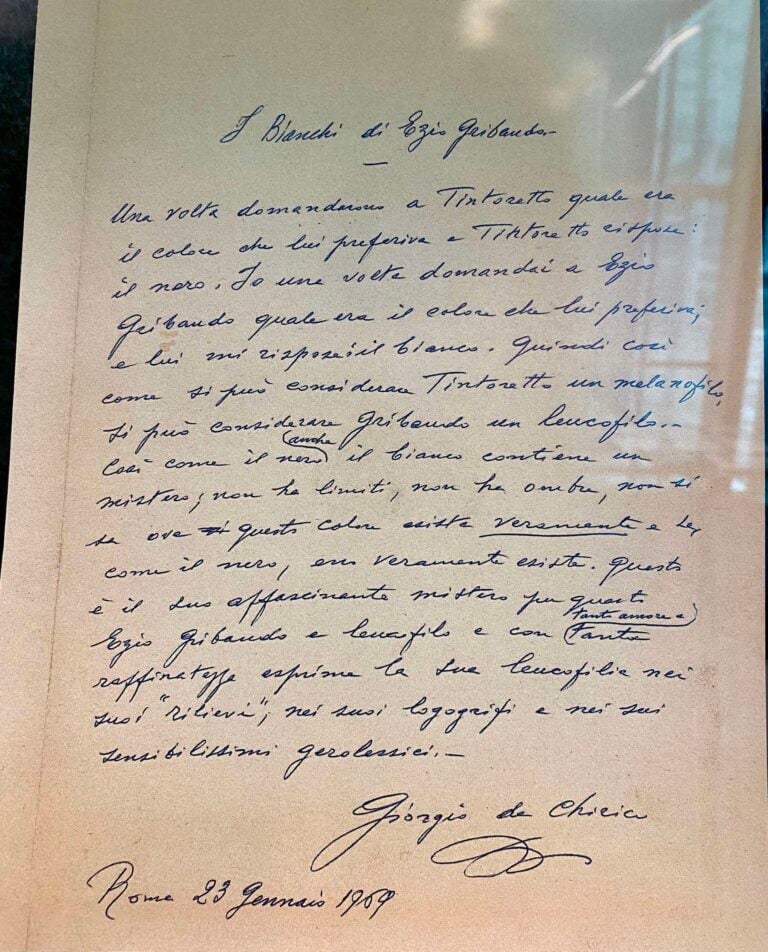 I Bianchi di Ezio Gribaudo.–
Una volta domandarono a Tintoretto quale era
il colore che lui preferiva e Tintoretto rispose:
il nero. Io una volta domandai a Ezio
Gribaudo quale era il colore che lui preferiva;
e lui mi rispose: il bianco. Quindi così
come si può considerare Tintoretto un melanofilo,
si può considerare Gribaudo un leucofilo.–
Così come il nero anche il bianco contiene un
mistero; non ha limiti, non ha ombre, non si
sa ove questo colore esista veramente e se,
come il nero, esso veramente esiste. Questo
è il suo affascinante mistero per questo
Ezio Gribaudo e leucofilo e con tanto amore e tanta
raffinatezza esprime la sua leucofilia nei
suoi "rilievi", nei suoi logogrifi e nei suoi
sensibilissimi gerolessici.–
Giorgio de Chirico
Roma 23 Gennaio 1969